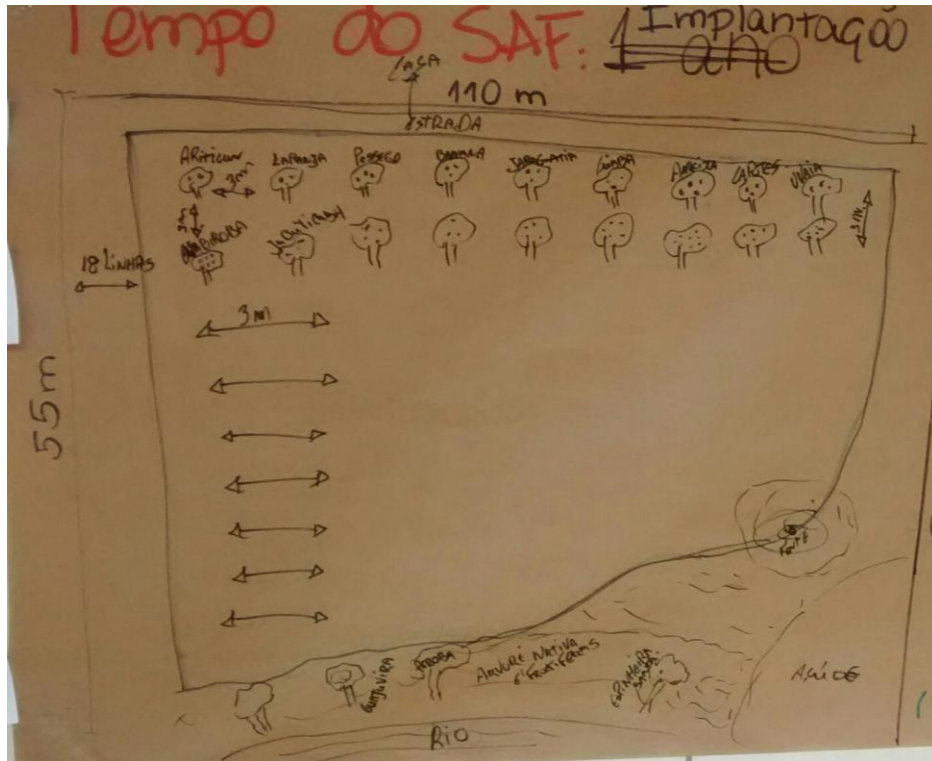 Tempo do SAF: 1 Implantação
ano
CASA
110 m
ESTRADA
ARiTicuM LARANJA PESSEGO BANANA JARACATIA GOIABA AMEIXA UVAIA
3m
3m
3 m.
GABIROBA
18 LiNHAS
3 m
55 m
FONTE
GUAJUVIRA
PEROBA
NATIVA
E FRUTIFERAS
ESPINHEIRA
SANTA
AÇUDE
RiO